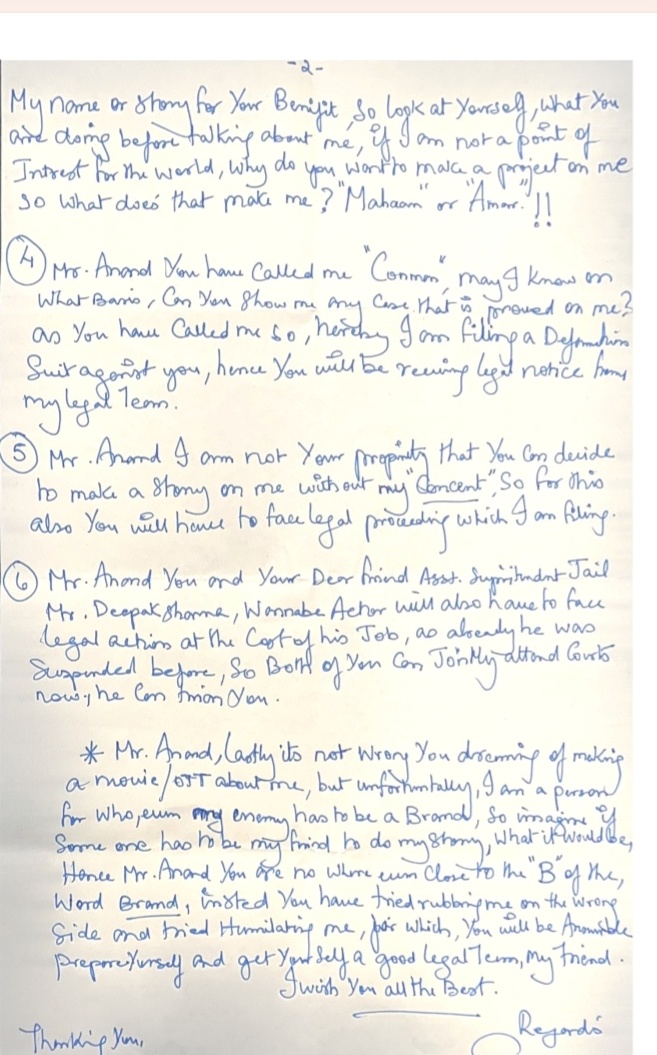 -2-
My name or story for Your Benifit, So look at Yourself, what You
are doing before talking about me, if I am not a point of
Intrest for the World, Why do you want to make a project on me
so what does that make me? "Mahaan" or "Amar."!!
4 Mr. Anand You have Called me "Conman", may I know on
What Basis, Can You Show me any Case that is proved on me?
as You have Called me so, hereby I am filing a Defamation
Suit against you, hence You will be reciving legal notice from
my legal Team.
5 Mr. Anand I am not Your propirty that You Can decide
to make a Story on me without my "Concent", So for this
also You will have to face legal proceeding which I am filing.
6 Mr. Anand You and Your Dear friend Asst. Jail
Mr. Deepak Sharma, Wannabe Actor will also have to face
legal action at the Cost of his Job, as already he was
Suspended before, So Both of You Can Jointly attend Courts
now, he Can You.
* Mr. Anand, lastly its not Wrong You dreaming of making
a movie/OTT about me, but unfortuntally, I am a person
for who, even my enemy has to be a Brand, So imagine if
Some one has to be my frind to do my Story, What it Would be,
Hence Mr. Anand You are no where even Close to the "B" of the,
Word Brand, insted You have tried rubbing me on the Wrong
Side and tried Humilating me, for which, You will be
prepare Yurself and get Yourself a good legal Team, My friend.
I wish You all the Best.
Thanking You,
Regards